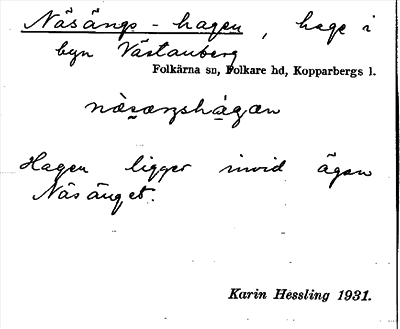 Näsängs-hagen, hage i
byn Västanberg
Folkärna sn, Folkare hd, Kopparbergs l.
Hagen ligger invid ägan
Näsänget.
Karin Hessling 1931.